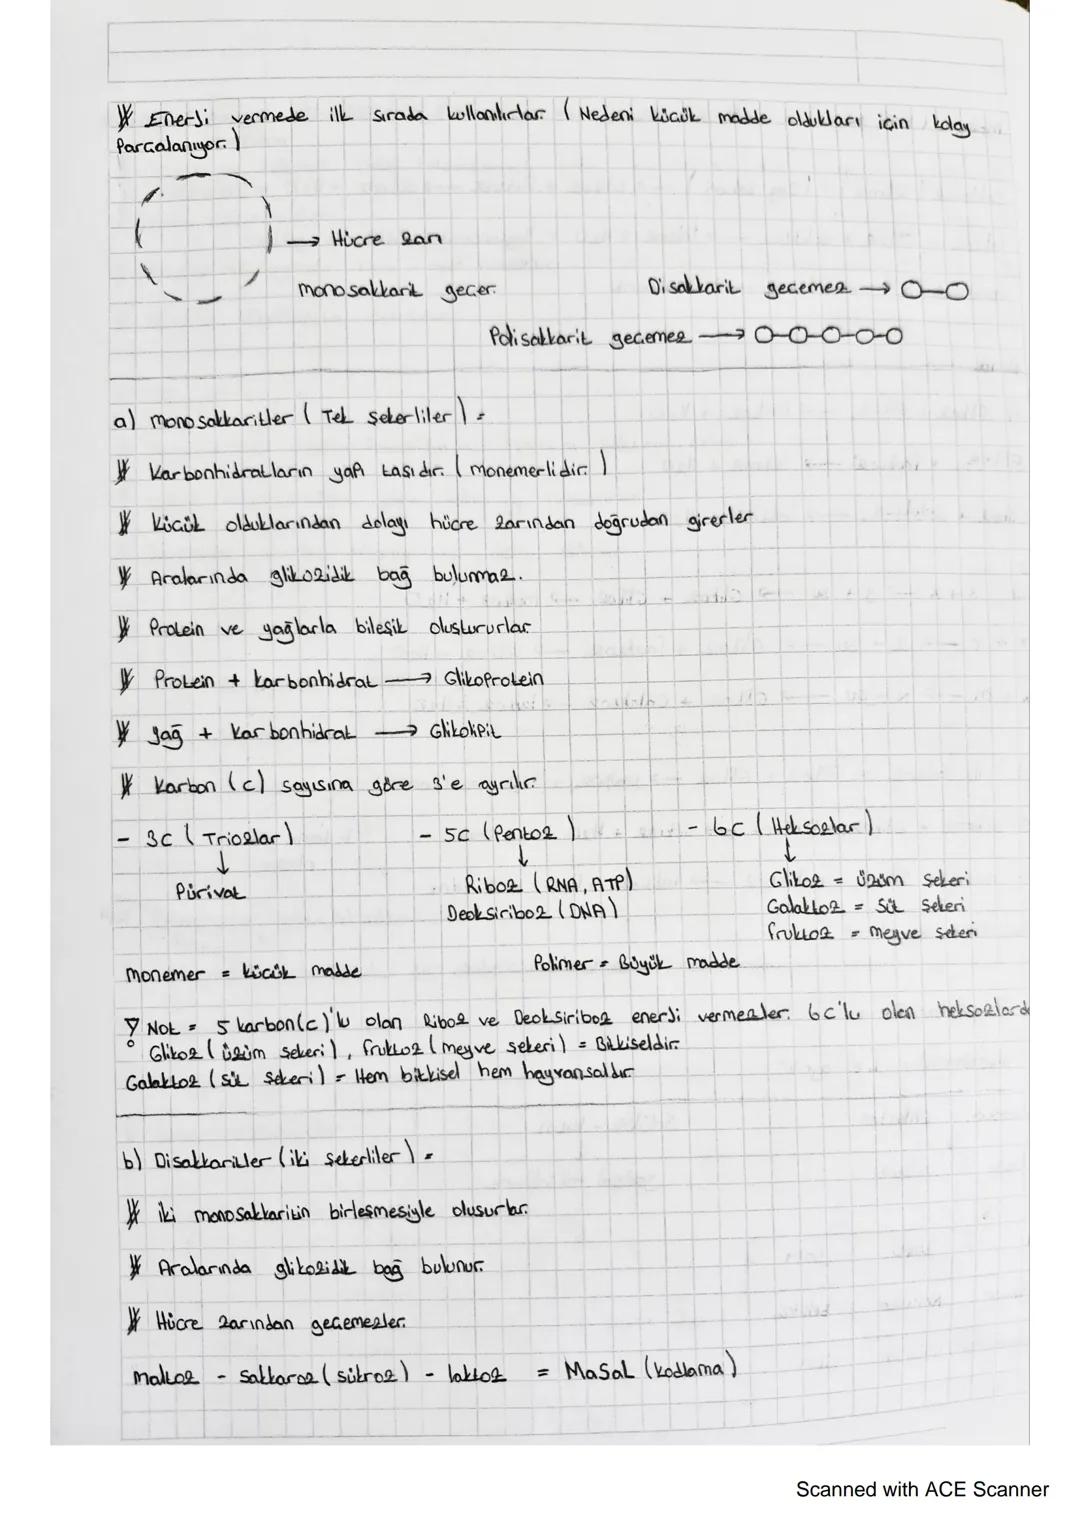 Enerji vermede ilk sırada kullanılırlar. (Nedeni küçük madde oldukları için kolay
Parçalanıyor.)
→ Hücre zarı
monosakkarit geçer.
Disakkarit geçemez →
Polisakkarit geçemez →
a) monosakkaritler (Tek şekerliler) =
Karbonhidratların yapı taşıdır. (monemerlidir.)
Küçük olduklarından dolayı hücre zarından doğrudan girerler
Aralarında glikozidik bağ bulunmaz.
Protein ve yağlarla bileşik oluştururlar.
Protein + karbonhidrat → Glikoprotein
yağ + karbonhidrat → Glikolipit
Karbon (c) sayısına göre 3'e ayrılır.
- 3C (Triozlar) - 5C (Pentoz) - 6C (Heksozlar)
↓ ↓ ↓
Pürivat Riboz (RNA, ATP) Glikoz = üzüm şekeri
Deoksiriboz (DNA) Galaktoz = Süt şekeri
fruktoz = meyve şekeri
monemer = küçük madde Polimer = Büyük madde
Not = 5 karbon(c)'lu olan Riboz ve Deoksiriboz enerji vermezler. 6c'lu olan heksozlard
Glikoz (üzüm şekeri), fruktoz (meyve şekeri) = Bitkiseldir.
Galaktoz (süt şekeri) = Hem bitkisel hem hayvansaldır.
b) Disakkaritler (iki şekerliler) =
iki monosakkaritin birleşmesiyle oluşurlar.
Aralarında glikozidik bağ bulunur.
Hücre zarından geçemezler.
maltoz - sakkaroz (sükroz) - laktoz = MaSaL (kodlama)
Scanned with ACE Scanner